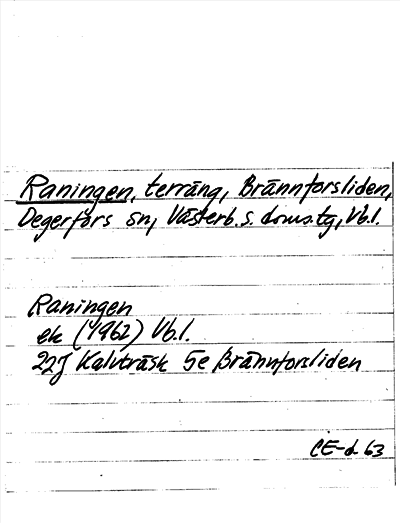 Raningen, terräng, Brännforsliden,
Degerfors sn, Västerb. s. doms.tg, Vb.l.
Raningen
ek (1962) Vb.l.
22J Kalvträsk 5e Brännforsliden
CE-d 63